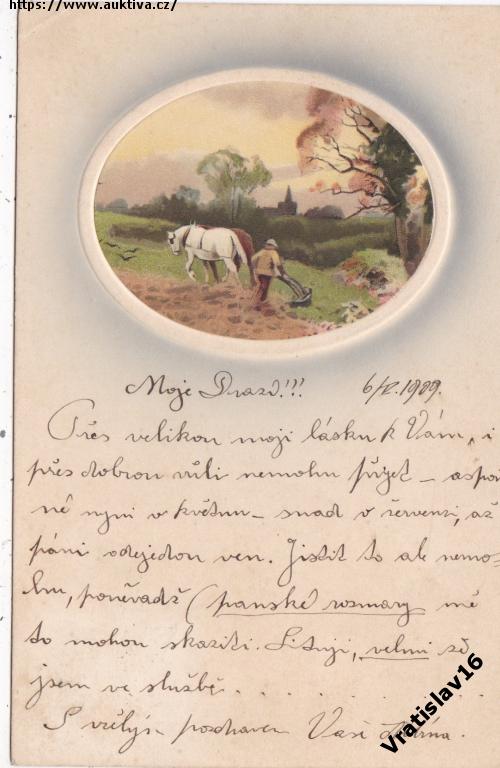 https://www.auktiva.cz/
Moje Drazí!!! 6/V. 1909.
Přes velikou moji lásku k Vám, i
přes dobrou vůli nemohu přijet – aspoň
né nyní v květnu – snad v červenci, až
páni odejedou ven. Jistit to ale nemo-
hu, poněvadž (panské rozmary mě
to mohou skaziti. Lituji, velmi že
jsem ve službě. . . . .
S vřelým pozdravem Vaše
Vratislav16